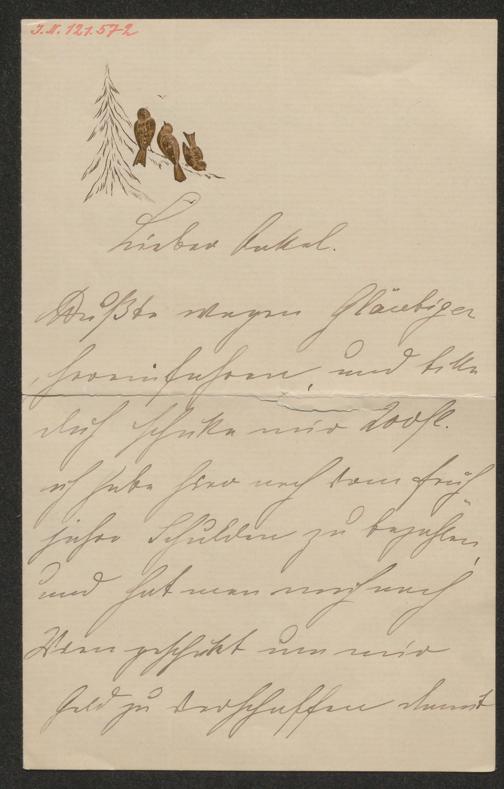 I.N. 121.572
Lieber Onkel.
Mußte wegen Gläubiger
hereinfahren, und bitte
dich schicke mir 200 fl.
ich habe hier noch vom früh
jahr Schulden zu bezahlen,
und hat man mich nach
Wien geschickt um mir
Geld zu verschaffen damit